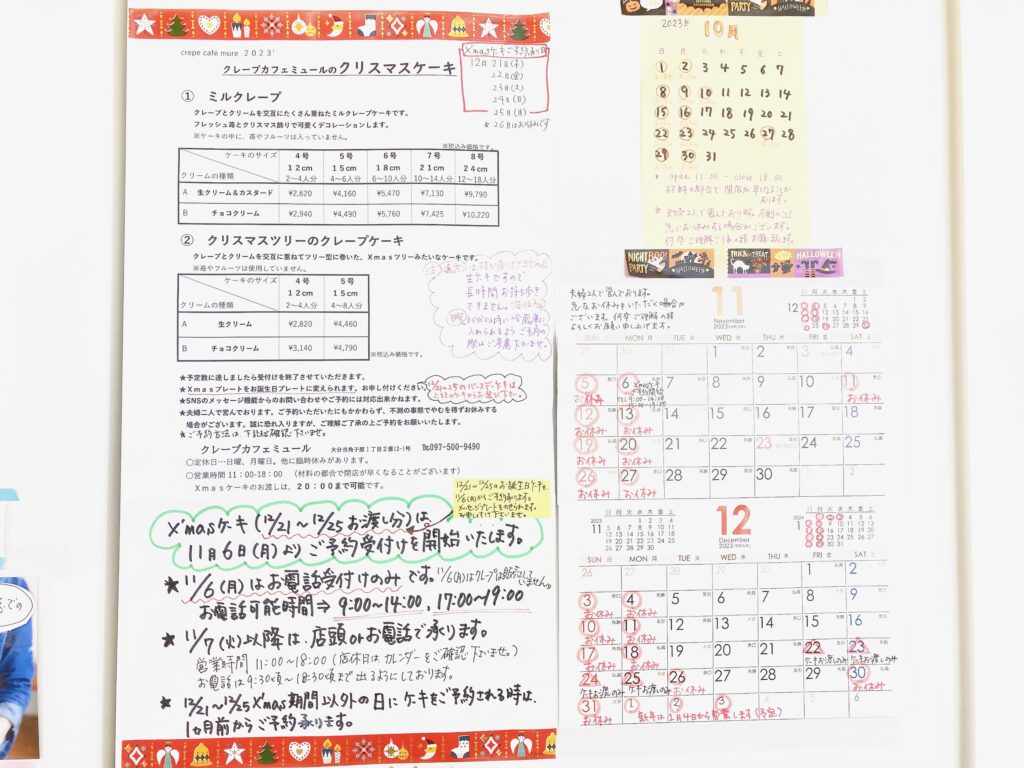 crepe cafe mure 2023'
クレープカフェミュールのクリスマスケーキ
X'masケーキご予約承り日
12月21日(木)
22日(金)
23日(土)
24日(日)
25日(月)
★26日はお休みです
① ミルクレープ
クレープとクリームを交互にたくさん重ねたミルクレープケーキです。
フレッシュ苺とクリスマス飾りで可愛くデコレーションします。
※ケーキの中に、苺やフルーツは入っていません。
※税込み価格です。
ケーキのサイズ 4号 5号 6号 7号 8号
12cm 15cm 18cm 21cm 24cm
クリームの種類 2〜4人分 4〜6人分 6〜10人分 10〜14人分 12〜18人分
A 生クリーム&カスタード ¥2,620 ¥4,160 ¥5,470 ¥7,130 ¥9,790
B チョコクリーム ¥2,940 ¥4,490 ¥5,760 ¥7,425 ¥10,220
② クリスマスツリーのクレープケーキ
クレープとクリームを交互に重ねてツリー型に巻いた、Xmasツリーみたいなケーキです。
※苺やフルーツは使用していません。
ケーキのサイズ 4号 5号
12cm 15cm
クリームの種類 2〜4人分 4〜8人分
A 生クリーム ¥2,820 ¥4,460
B チョコクリーム ¥3,140 ¥4,790
※税込み価格です。
生ケーキですので
長時間お持ち歩き
できません。
30分以内に冷蔵庫に
入れられるようご予約の
際はご考慮下さいませ。
★予定数に達しましたら受付けを終了させていただきます。
★Xmasプレートをお誕生日プレートに変えられます。お申し付けください。
12/21〜25のバースデーケーキは
上記のケーキからお選び下さい。
★SNSのメッセージ機能からのお問い合わせやご予約には対応出来かねます。
★夫婦二人で営んでおります。ご予約いただいたにもかかわらず、不測の事態でやむを得ずお休みする
場合がございます。誠に恐れ入りますが、ご理解ご了承の上ご予約をお願いいたします。
★ご予約方法は、下記をご確認下さいませ。
クレープカフェミュール 大分市角子原1丁目2番12-1号 ℡097-500-9490
○定休日…日曜、月曜日。他に臨時休みがあります。
○営業時間 11:00-18:00 (材料の都合で閉店が早くなることがございます)
Xmasケーキのお渡しは、20:00まで可能です。
12/21〜12/25のお誕生日ケーキも
11/6(月)からご予約承ります。
X'masケーキ(12/21〜12/25お渡し分)は、
11月6日(月)よりご予約受付けを開始いたします。
★11/6(月)はお電話受付けのみです。11/6(月)はクレープは販売していません。
お電話可能時間⇒9:00〜14:00、17:00〜19:00
★11/7(火)以降は、店頭orお電話で承ります。
営業時間 11:00〜18:00(店休日はカレンダーをご確認下さいませ。)
お電話は9:30頃〜18:30頃まで出るようにしております。
★12/21〜12/25X'mas期間以外の日にケーキをご予約される時は、
1ヵ月前からご予約承ります。
PARTY HALLOWEEN
2023年 10月
日 月 火 水 木 金 土
1 2 3 4 5 6 7
8 9 10 11 12 13 14
15 16 17 18 19 20 21
22 23 24 25 26 27 28
29 30 31
★ open 11:00 - close 18:00
材料の都合で閉店が早くなることが
あります。
★夫婦2人で営んでおります。不測のことで
急にお休みする場合がございます。
何卒ご理解ご了承の程お願い致します。
NIGHT PARTY HALLOWEEN TRICK or TREAT HALLOWEEN
夫婦2人で営んでおります。
急なお休みをいただく場合が
ございます。何卒ご理解の程
よろしくお願い申し上げます。
11
November
2023
12 日 月 火 水 木 金 土
SUN 日 MON 月 TUE 火 WED 水 THU 木 FRI 金 SAT 土
29 30 31 1 2 3 4
5 6 7 8 9 10 11
お休み X'masケーキ予約開始 お休み
TEL 9:00-14:00
17:00-19:00
12 13 14 15 16 17 18
お休み お休み
19 20 21 22 23 24 25
お休み お休み
26 27 28 29 30
お休み お休み
11 日 月 火 水 木 金 土
12
December
2023
1
SUN 日 MON 月 TUE 火 WED 水 THU 木 FRI 金 SAT 土
26 27 28 29 30 1 2
3 4 5 6 7 8 9
お休み お休み
10 11 12 13 14 15 16
お休み お休み
17 18 19 20 21 22 23
お休み お休み ケーキお渡しのみ ケーキお渡しのみ
24 25 26 27 28 29 30
ケーキお渡しのみ ケーキお渡しのみ お休み お休み
31 1 2 3 4 5 6
お休み 新年は1月4日から営業します(予定)